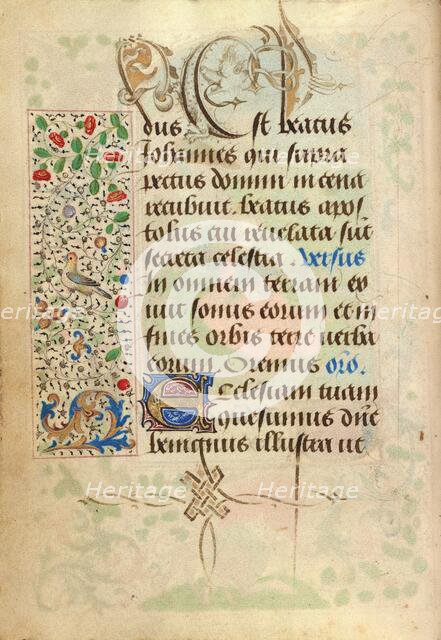 dus Est beatus
Iohannes qui supra
pectus domini in cena
recubuit. beatus apos
tolus cui reuelata sut
secreta celestia. Versus
in omnem terram ex
iuit sonus eorum et in
fines orbis terre uerba
eorum Oremus oro.
Ecclesiam tuam
quesumus dne
benignus illustra ut
Heritage Heritage Heritage
Heritage Heritage Heritage
Heritage Heritage